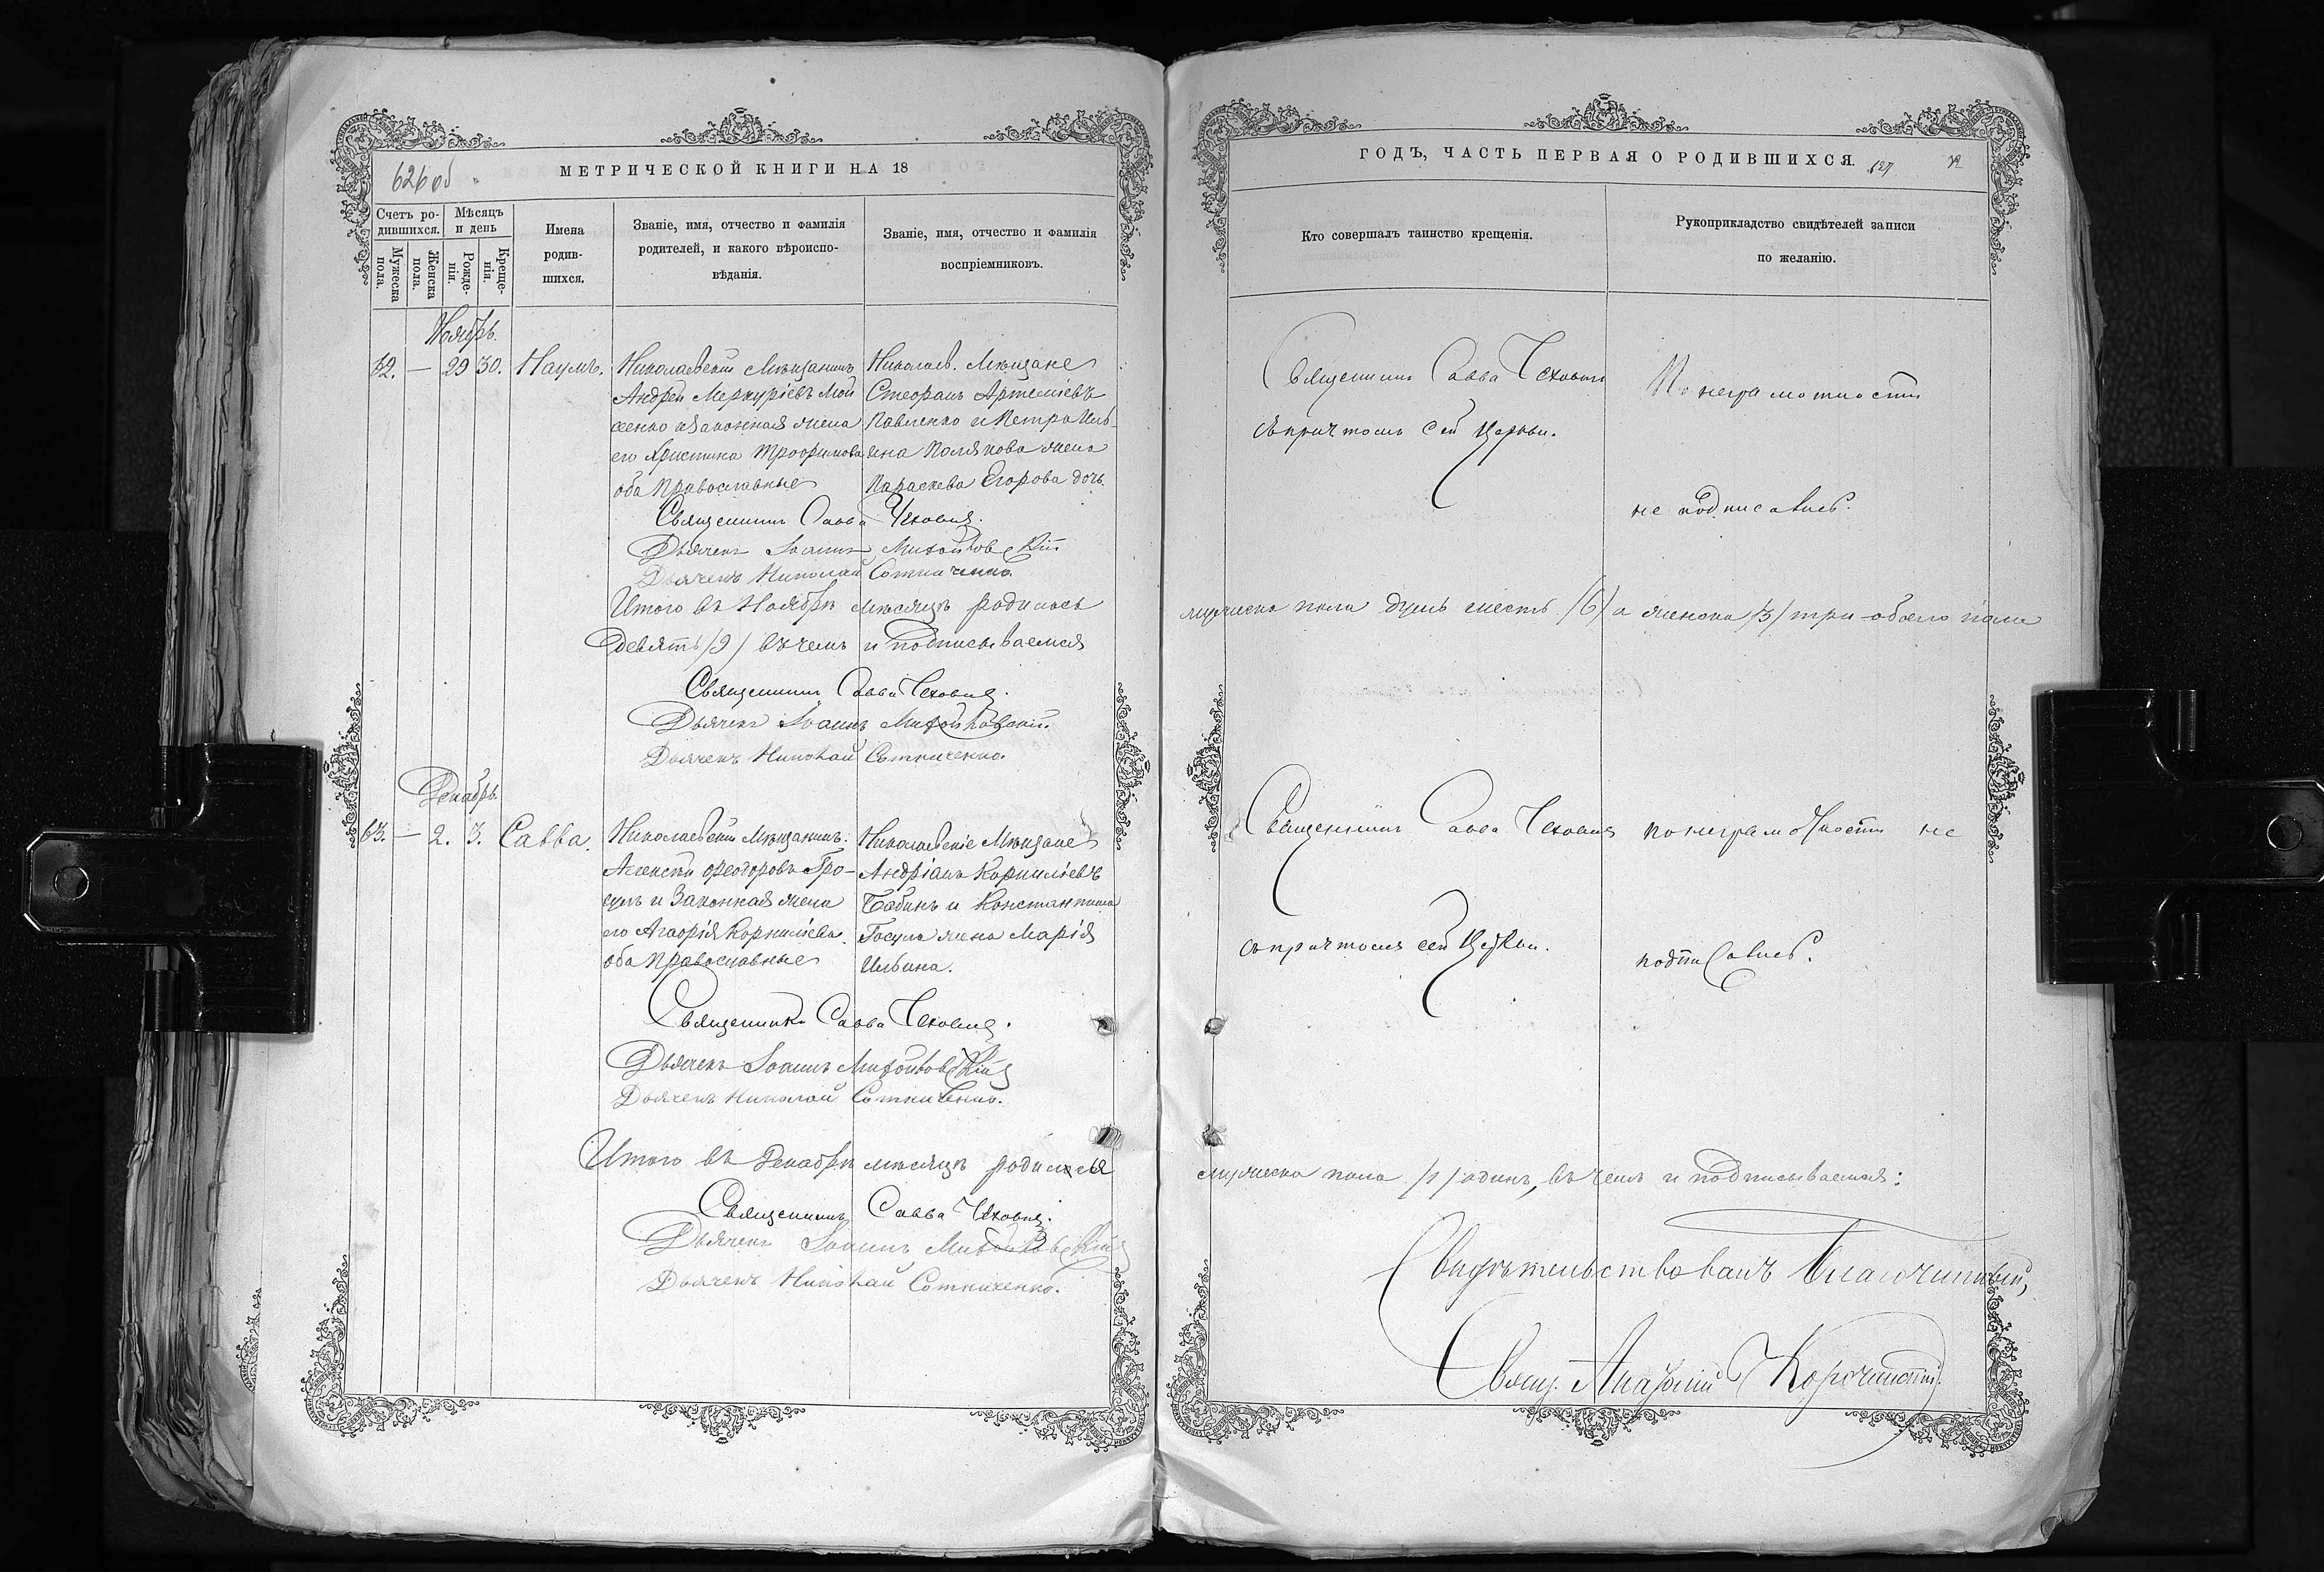 626 об
МЕТРИЧЕСКОЙ КНИГИ НА 18
Счетъ ро-
дившихся.
Мѣсяцъ
и день
Мужеска
пола.
Женска
пола.
Рожде-
нія.
Креще-
нія.
Имена
родив-
шихся.
Званіе, имя, отчество и фамилія
родителей, и какого вѣроиспо-
вѣданія.
Званіе, имя, отчество и фамилія
воспріемниковъ.
Ноябрь.
62. — 29 30. Наумъ.
Николаевскій Мѣщанинъ
Андрей Меркуріевъ Мой
сеенко и законная жена
его Христина Трофимова
оба православные
Николаев. Мѣщане
Стефанъ Артеміевъ
Павленко и Петра Иль-
ина Полякова жена
Параскева Егорова дочь
Священникъ Савва Чеховичъ.
Дьячекъ Іоаннъ
Дьячекъ Николай Сотниченко.
Итого въ Ноябрѣ мѣсяцѣ родилось
девять /9/ въ чемъ и подписываемся
Священникъ Савва Чеховичъ.
Дьячекъ Іоаннъ
Дьячекъ Николай Сотниченко.
Декабрь
63. — 2. 3. Савва.
Николаевскій Мѣщанинъ
Алексѣй Феодоровъ Гро-
и законная жена
его Агафія Корниліева
оба православные
Николаевскіе Мѣщане
Андріанъ Корниліевъ
Бабинъ и Константина
жена Марія
Ильина.
Священникъ Савва Чеховичъ.
Дьячекъ Іоаннъ
Дьячекъ Николай Сотниченко.
Итого въ Декабрѣ мѣсяцѣ родился
Священникъ Савва Чеховичъ.
Дьячекъ Іоаннъ
Дьячекъ Николай Сотниченко.
ГОДЪ, ЧАСТЬ ПЕРВАЯ О РОДИВШИХСЯ.
627
Кто совершалъ таинство крещенія.
Рукоприкладство свидѣтелей записи
по желанію.
Священникъ Савва Чеховичъ
съ причтомъ сей Церкви.
По неграмотности
не подписались.
мужеска пола душъ шесть /6/ а женска /3/ три обоего пола
Священникъ Савва Чеховичъ
съ причтомъ сей Церкви.
по неграмотности не
подписались.
мужеска пола /1/ одинъ, въ чемъ и подписываемся:
Свидѣтельствовалъ Благочинный,
Свящ.